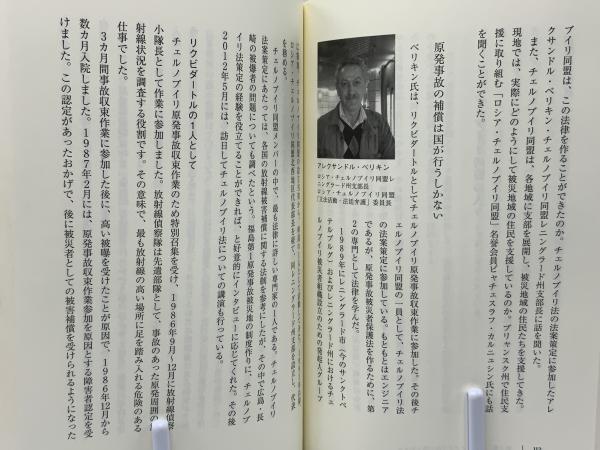 ブイリ同盟は、この法律を作ることができたのか。チェルノブイリ法の法案策定に参加したアレ
クサンドル・ベリキン・チェルノブイリ同盟レニングラード州支部長に話を聞いた。
また、チェルノブイリ同盟は、各地域に支部を展開し、被災地域の住民たちを支援してきた。
現地では、実際にどのようにして被災地域の住民を支援しているのか。ブリヤンスク州で住民支
援に取り組む「ロシア・チェルノブイリ同盟」名誉会員ビャチェスラフ・カルニュシン氏にも話
を聞くことができた。
原発事故の補償は国が行うしかない
アレクサンドル・ベリキン
ロシア・チェルノブイリ同盟レ
ニングラード州支部長
ロシア・チェルノブイリ同盟
「立法活動・法廷弁護」委員長
ベリキン氏は、リクビダートルとしてチェ
ルノブイリ原発
ェルノブイリ同盟の一員として、チェルノブイリ法
の法案策定に参加している。もともとはエンジニア
であるが、原発事故被災者保護法を作るために、第
2の専門として法律を学んだ。
1989年にレニングラード市（今のサンクトペ
テルブルグ）およびレニングラード州におけるチェ
ルノブイリ被災者組織設立のための発起人グループ
を務める。
チェルノブイリ同盟メンバーの中で、最も法律に詳しい専門家の1人である。チェルノブイリ
法案策定にあたっては、各国の放射線被害補償に関する法制を参考にしたが、その中で広島・長
崎の被爆者の問題についても調べたという。福島第1原発事故被災地の制度作りに、チェルノブ
イリ法策定の経験を役立てることができれば、と好意的にインタビューに応じてくれた。その後
2012年5月には、訪日してチェルノブイリ法についての講演も行っている。
リクビダートルの1人として
チェルノブイリ原発事故収束作業のため特別召集を受け、1986年9月〜12月に放射線偵察
小隊長として作業に参加しました。放射線偵察隊は先遣部隊として、事故のあった原発周囲の
放射線状況を調査する役割です。その意味で、最も放射線の高い場所に足を踏み入れる危険のある
仕事でした。
3カ月間事故収束作業に参加した後に、高い被曝を受けたことが原因で、1986年12月から
数カ月入院しました。1987年2月には、原発事故収束作業参加を原因とする障害者認定を受
けました。この認定があったおかげで、後に被災者としての被害補償を受けられるようになった